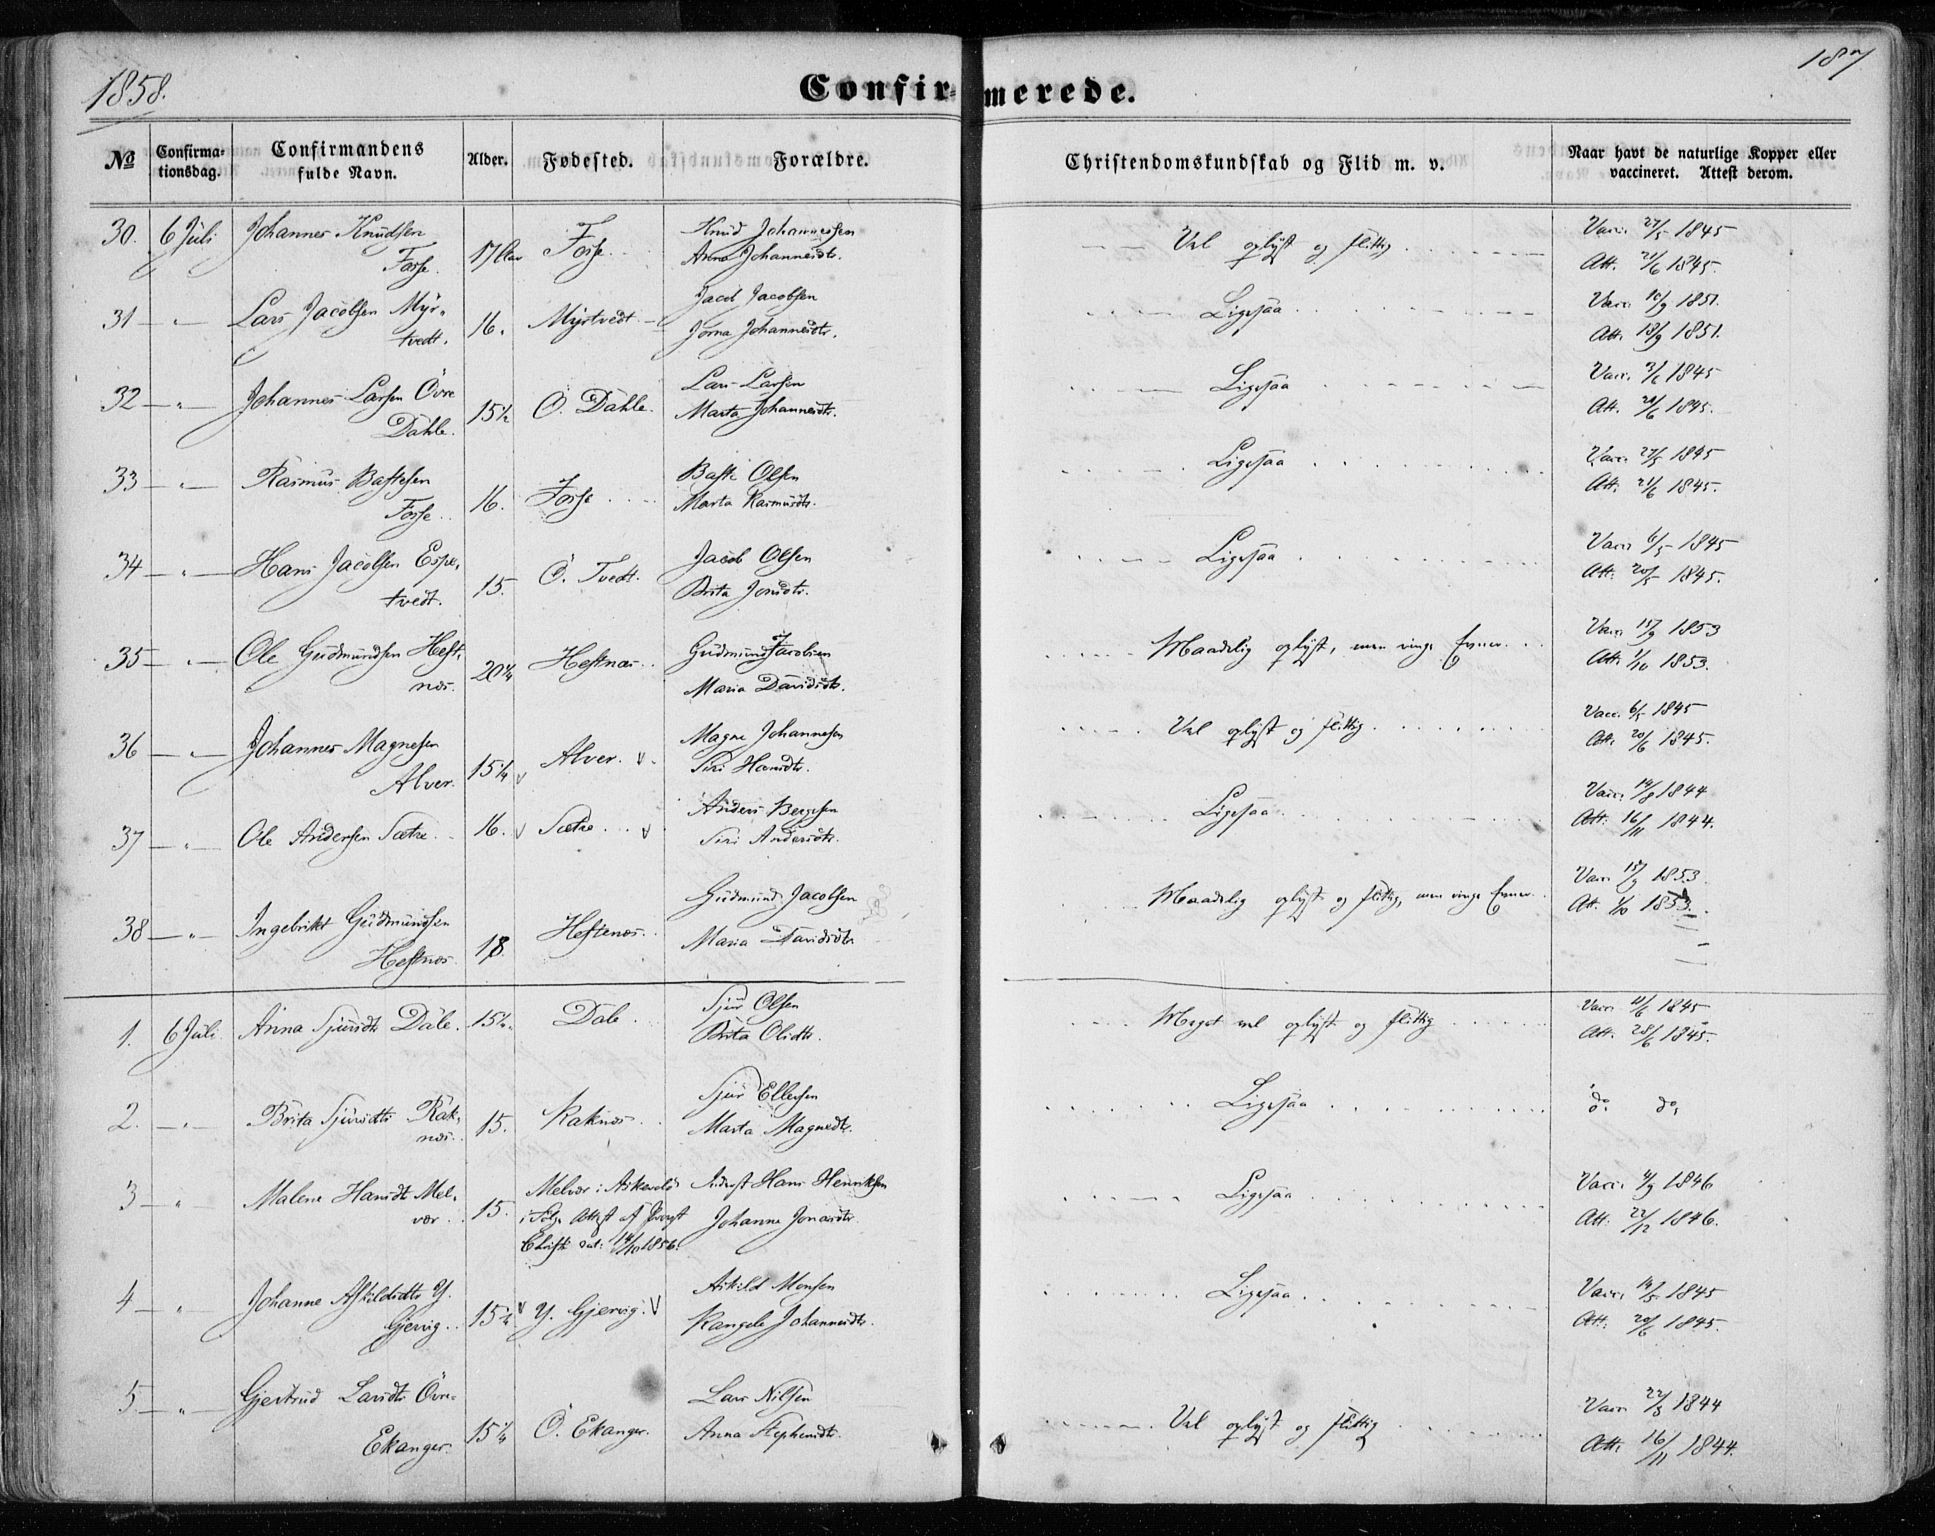 1858.
187
Confirmerede.
No
Confirmationsdag.
Confirmandens fulde Navn.
Alder.
Fødested.
Forældre.
Christendomskundskab og Flid m. v.
Naar havt de naturlige Kopper eller vaccineret. Attest derom.
30. 6 Juli Johannes Knudsen Fosse. 17 Fosse Knud Johannessen Vel oplyst og flittig Vacc. 27/5 1845
Anna Johannesdtr. Att. 21/6 1845.
31 — " — Lars Jacobsen Myrtvedt. 16. Myrtvedt Jacob Jacobsen Ligesaa Vacc. 10/9 1851.
Johannesdtr. Att. 18/9 1851.
32 — " — Johannes Larsen Övre Dahle. 15½ Ö. Dahle. Lars Larsen Ligesaa Vacc. 1845
Marta Johannesdtr. Att. 1845.
33 — " — Rasmus Bastesen Fosse. 16. Fosse Baste Olsen Ligesaa Vacc. 27/5 1845
Marta Rasmusdtr. Att. 21/6 1845.
34 — " — Hans Jacobsen Espetvedt. 15. Ö. Tvedt. Jacob Olsen Ligesaa Vacc. 6/5 1845
Brita Jonsdtr. Att. 20/5 1845.
35 — " — Ole Gudmundsen Hestnæs. 20¼ Hestnæs Gudmund Jacobsen Maadelig oplyst, men ringe Evner. Vacc. 15/9 1853
Maria Davidsdtr. Att. 1/10 1853.
36 — " — Johannes Magnesen Alver. 15¼ v Alver. v. Magne Johannesen Vel oplyst og flittig Vacc. 6/5 1845
Siri Hansdtr. Att. 20/6 1845.
37 — " — Ole Andersen Sætre 16. v Sætre v Anders Bergesen Ligesaa Vacc. 14/8 1844
Siri Andersdtr. Att. 16/11 1844.
38 — " — Ingebrikt Gudmundsen Hestnæs. 18. Hestenæs. Gudmund Jacobsen Maadelig oplyst og flittig, men ringe Evner Vacc. 15/9 1853
Maria Davidsdtr. Att. 1/10 1853.
1. 6 Juli. Anna Sjursdtr Dale. 15½. Dale. Sjur Olsen Meget vel oplyst og flittig Vacc. 11/6 1845
Brita Olsdtr. Att. 28/6 1845.
2. — " — Brita Sjursdtr Raknæs. 15. Raknæs Sjur Ellefsen Ligesaa do. do.
Marta Magnedtr.
3 — " — Malene Hansdt Melvær 15. Melvær i Askevold Hans Henriksen Ligesaa Vacc. 4/9 1846
i Følge Attest af Provst Johanne Jonasdtr. Att. 22/12 1846.
Christie dat: 14/10 1856.
4 — " — Johanne Askildsdtr Y. Gjervig. 15¼ v Y. Gjervig. v Askild Monsen Ligesaa Vacc. 14/5 1845
Rangele Johannesdtr. Att. 20/6 1845.
5. — " — Gjertrud Larsdtr Övre Ekanger. 15¼ Ö. Ekanger. Lars Nilsen Vel oplyst og flittig Vacc. 22/8 1844
Anna Stephensdtr. Att. 16/11 1844.